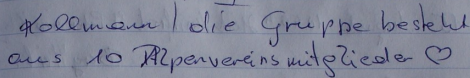 Kollmann / die Gruppe besteht
aus 10 Alpenvereinsmitglieder ♡